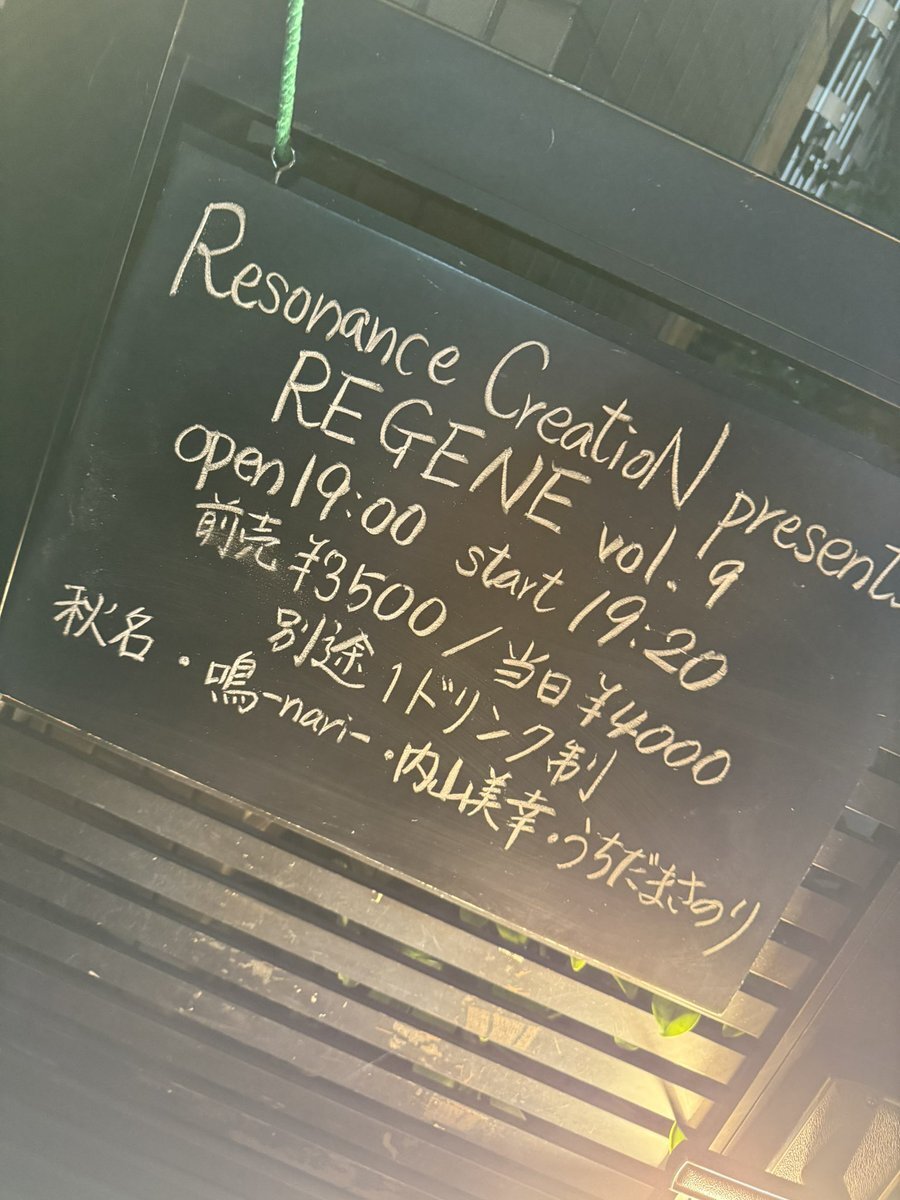 Resonance CreatioN presents
REGENE vol.9
open 19:00 start 19:20
前売 ¥3500 / 当日 ¥4000
別途 1ドリンク制
秋名・鳴-nari-・内山美幸・うちだまさのり